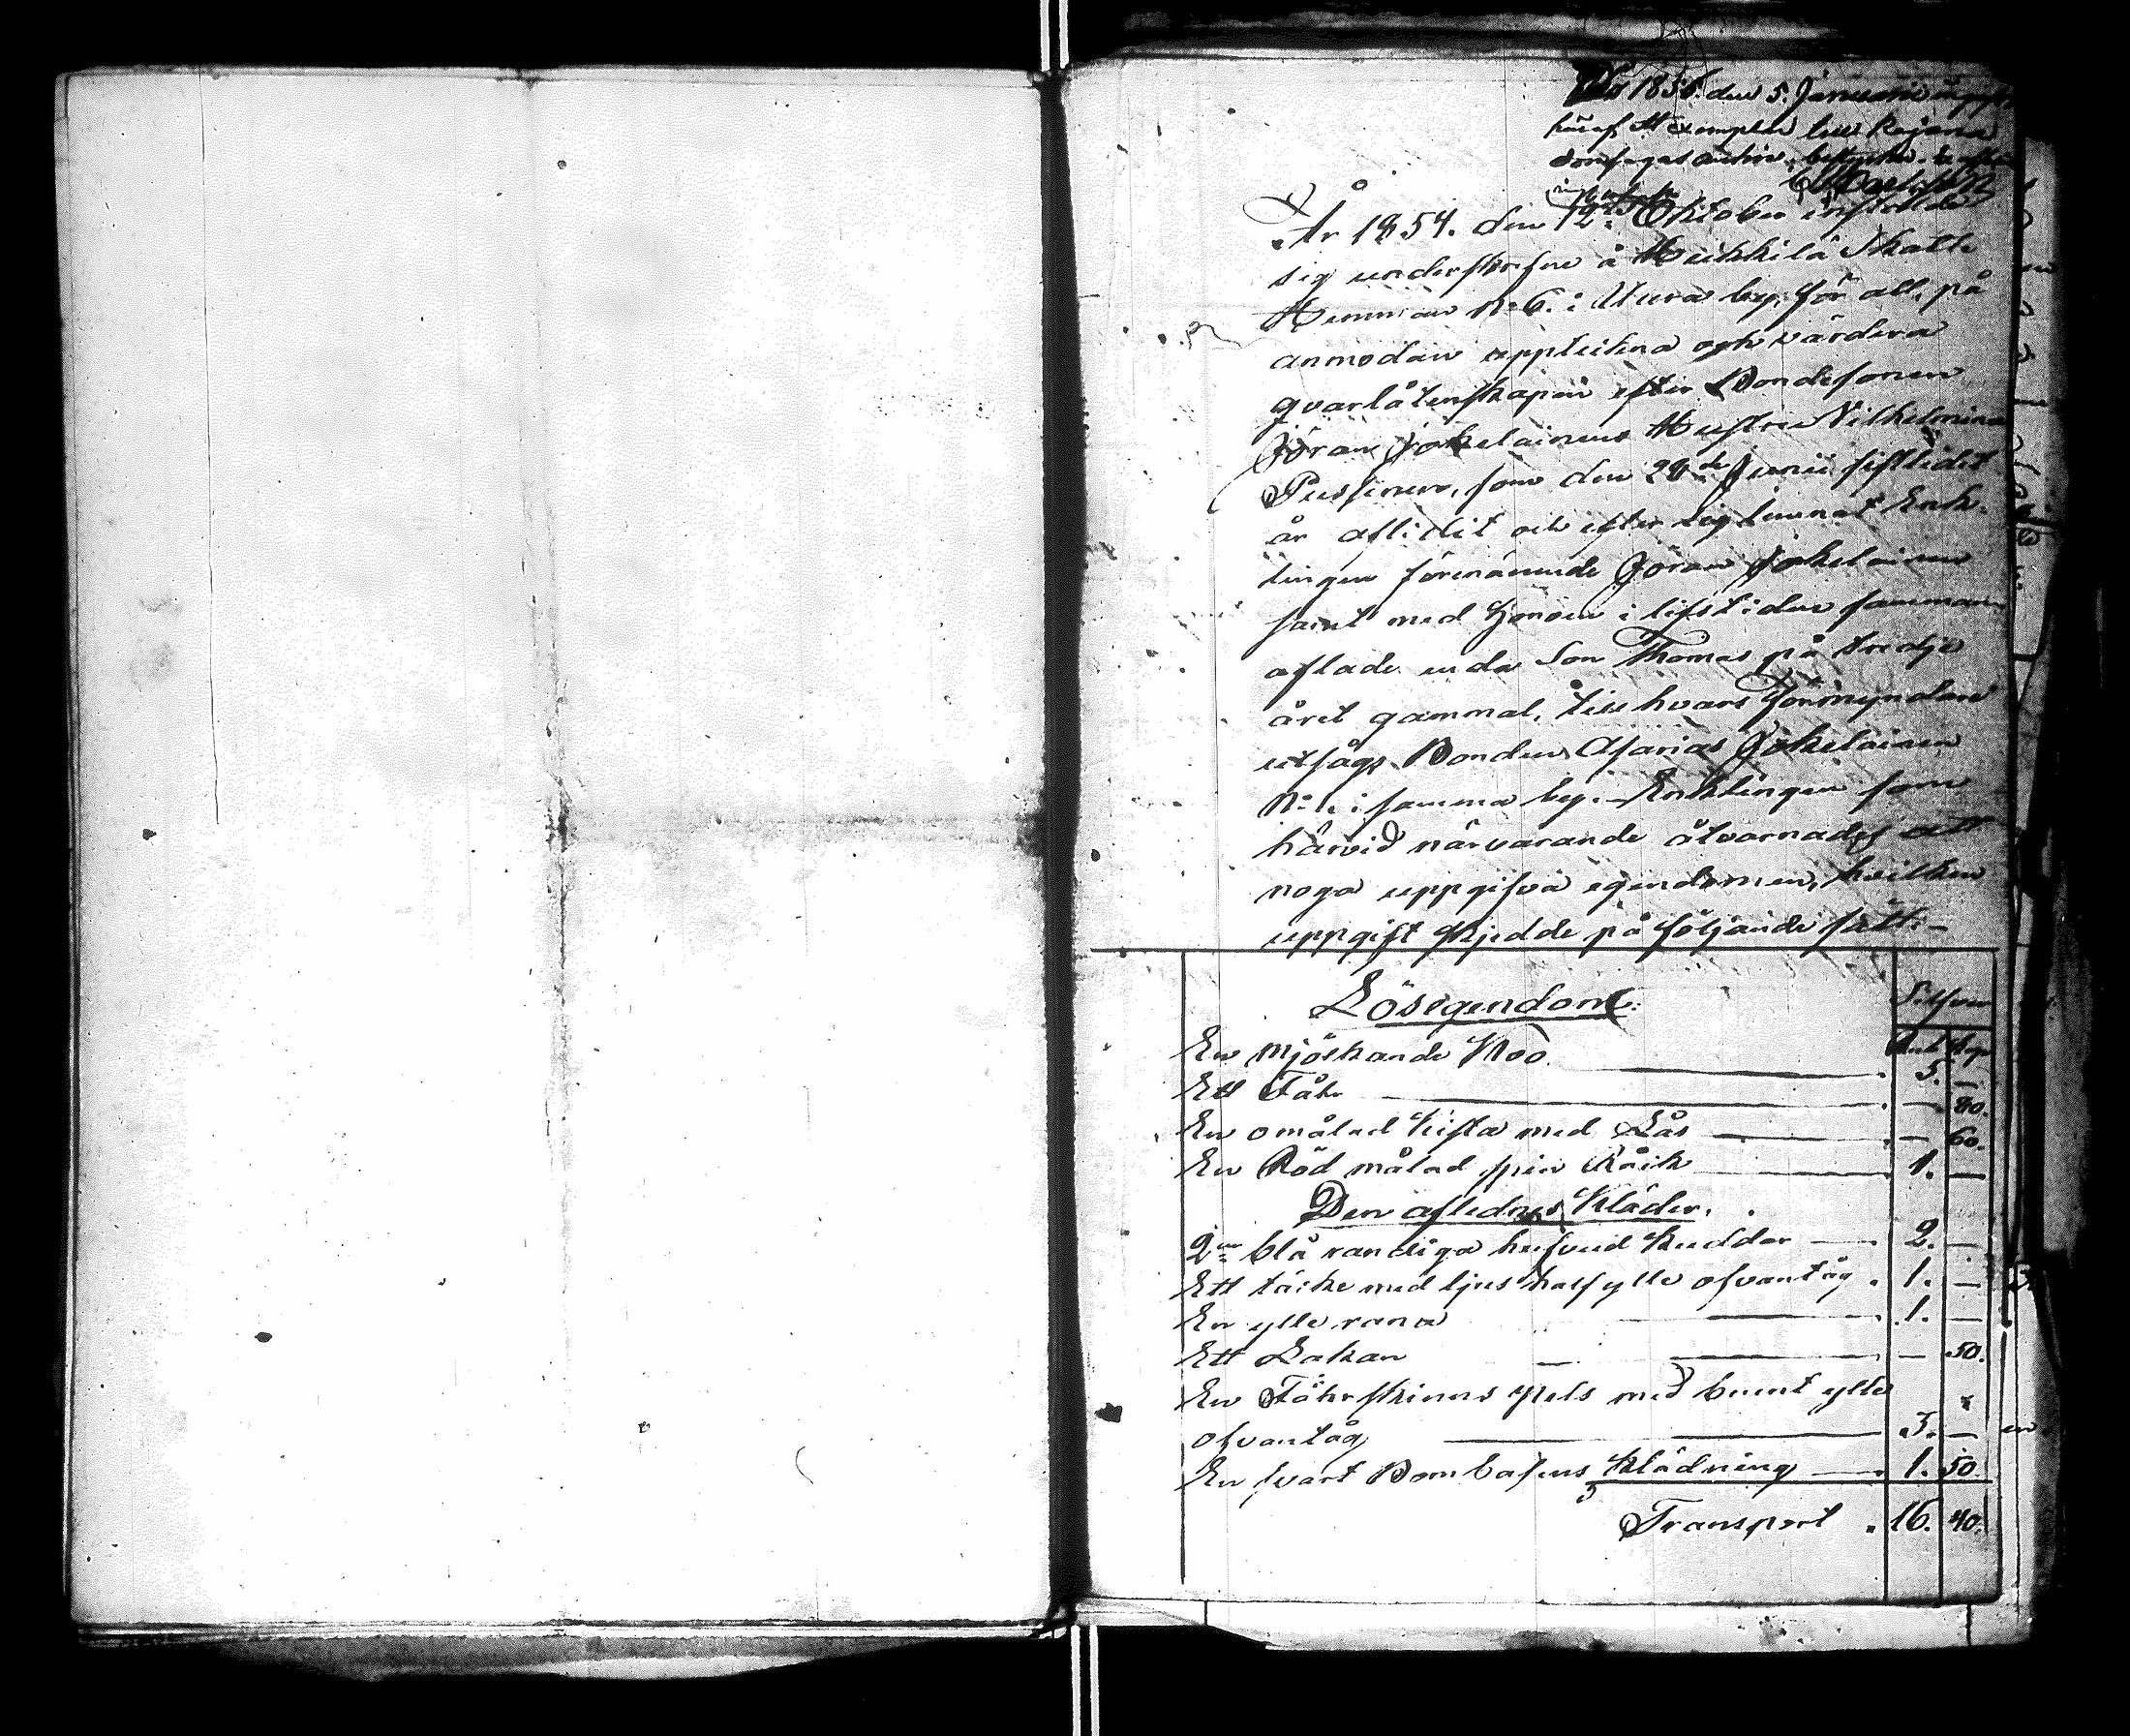 1856 den 5. Januarii
häraf exemplar
År 1854. den 12te Oktober instälde
sig underskrifne å Heikkilä Skatte
Hemman No 6. i Uura by, för att, på
anmodan uppteckna och värdera
qvarlåtenskapen efter Bondesonen
Jöran Jokelainens Hustru Vilhelmina
Pussinen, som den 28de Junii sistledit
år aflidit och efter sig lemnat Enk-
lingen förenämnde Jöran Jokelainen
samt med honom i lifstiden samman
aflade enda Son Thomas på tredje
året gammal, till hvars Förmyndare
utsågs Bonden Asarias Jokelainen
No i samma by. - Enklingen som
härvid närvarande åtvarnades att
noga uppgifva egendomen, hvilken
uppgift skjedde på följande sätt: -
Lösegendom: Silfver
Rub Kop
En Mjölkande Koo. 5. —
Ett Fåhr — 80.
En omålad Kista med Lås — 60.
En Röd målad spin Råck 1. —
Den aflednes Kläder.
2ne blå randiga hufvud Kuddar 2. —
Ett täcke med ljus half ylle ofvantåg 1. —
En ylle rana 1. —
Ett Lakan — 50.
En Fåhrskinns Pels med bunt ylle
ofvantåg 3. —
En svart Bombasins Klädning 1. 50.
Transport 16. 40.